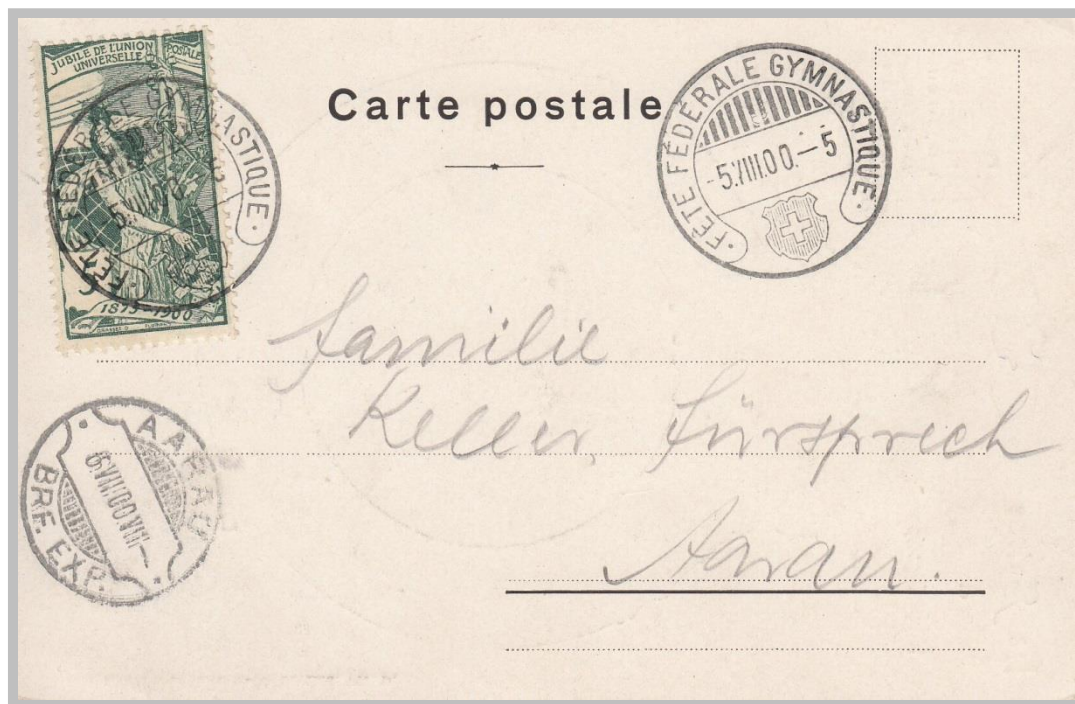 JUBILE DE L'UNION POSTALE
UNIVERSELLE
1875-1900
FÊTE FÉDÉRALE GYMNASTIQUE
-5.VIII.00.
Carte postale
FÊTE FÉDÉRALE GYMNASTIQUE
-5.VIII.00.-5
Familie
Keller, Fürsprech
Aarau.
AARAU
6.VIII.00.VIII-
BRF. EXP.